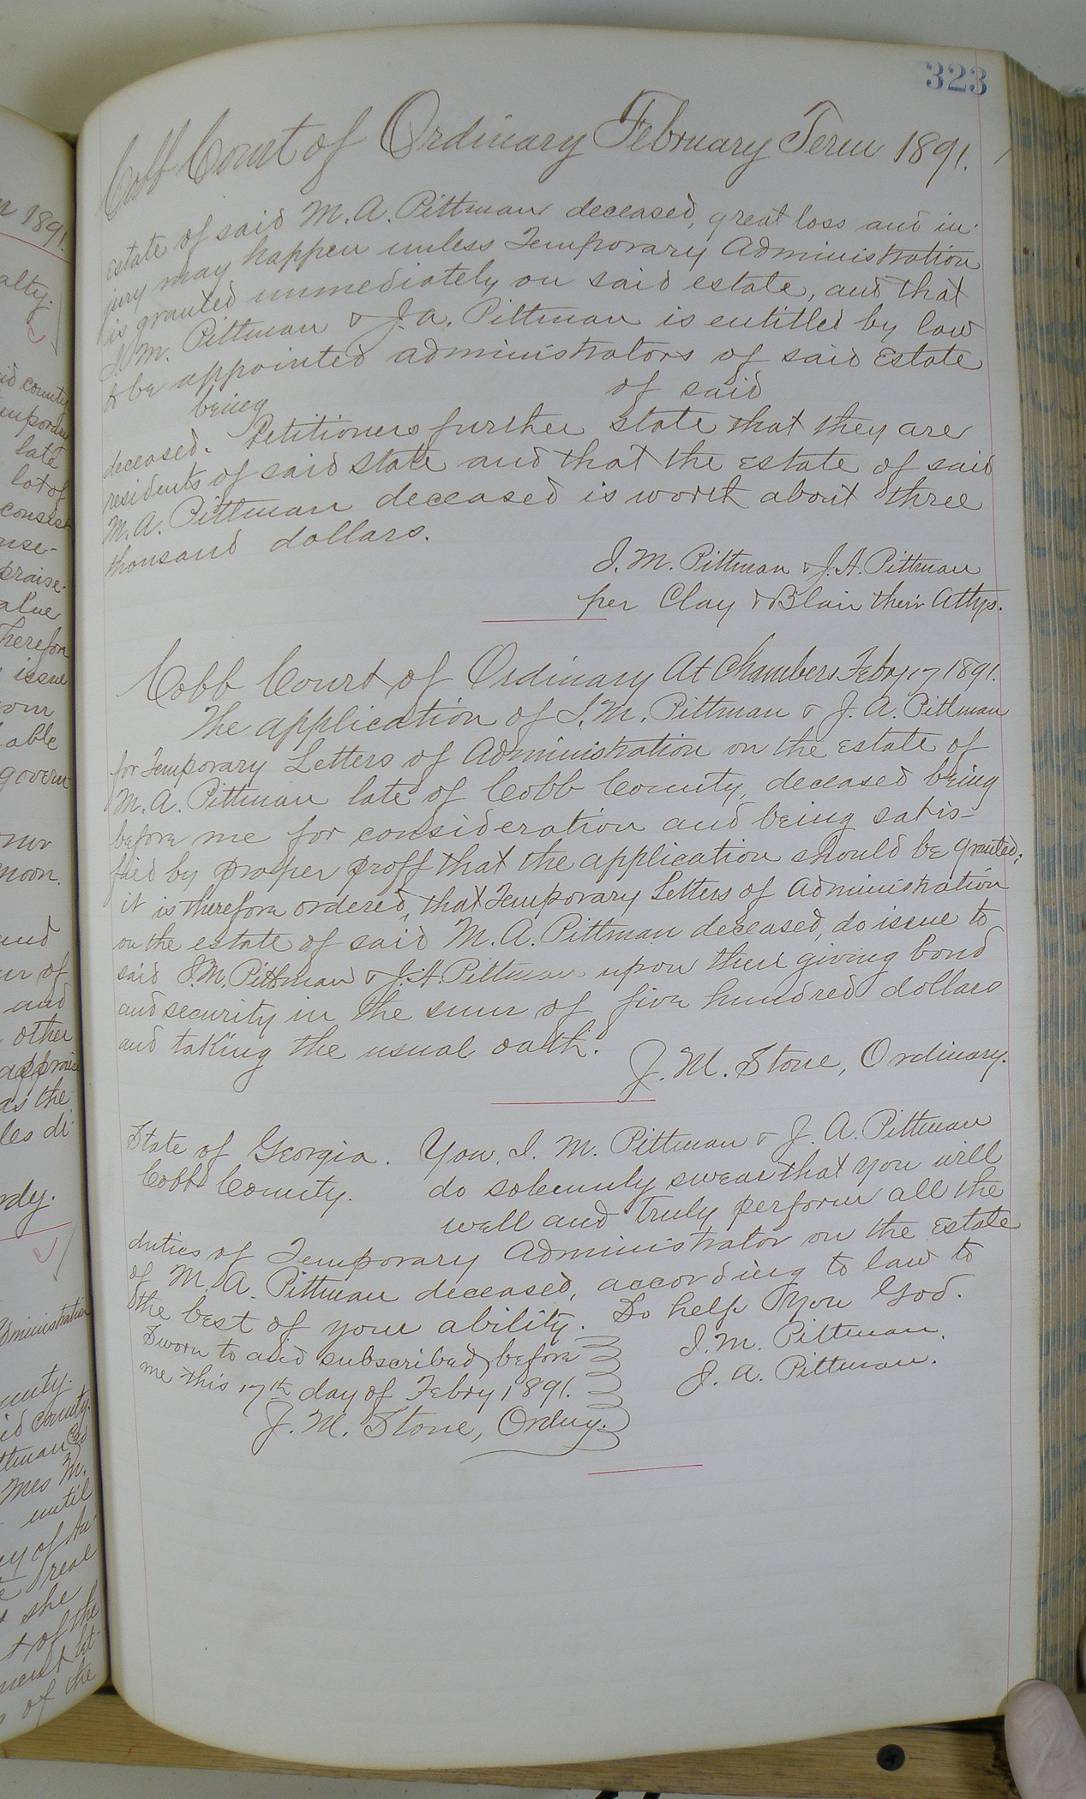 323
Cobb Court of Ordinary February Term 1891.
estate of said M. A. Pittman deceased, great loss and in-
jury may happen unless Temporary Administration
is granted immediately on said estate, and that
I. M. Pittman & J. A. Pittman is entitled by law
to be appointed administrators of said Estate
being of said
deceased. Petitioners further state that they are
residents of said state and that the Estate of said
M. A. Pittman deceased is worth about three
thousand dollars.
I. M. Pittman & J. A. Pittman
per Clay & Blair their Attys.
Cobb Court of Ordinary At Chambers Feby 17 1891.
The application of I. M. Pittman & J. A. Pittman
for Temporary Letters of Administration on the Estate of
M. A. Pittman late of Cobb County, deceased being
before me for consideration and being satis-
fied by proper proff that the application should be granted;
it is therefore ordered, that Temporary Letters of Administration
on the estate of said M. A. Pittman deceased, do issue to
said I. M. Pittman & J. A. Pittman upon their giving bond
and security in the sum of five hundred dollars
and taking the usual oath.
J. M. Stone, Ordinary.
State of Georgia. You, I. M. Pittman & J. A. Pittman
Cobb County. do solemnly swear that you will
well and truly perform all the
duties of Temporary Administrator on the Estate
of M. A. Pittman deceased, according to law to
the best of your ability. So help you God.
Sworn to and subscribed before I. M. Pittman.
me this 17th day of Febry 1891. J. A. Pittman.
J. M. Stone, Ordny.